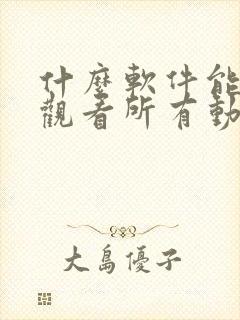 什麼軟件能
觀看所有動
大島優子